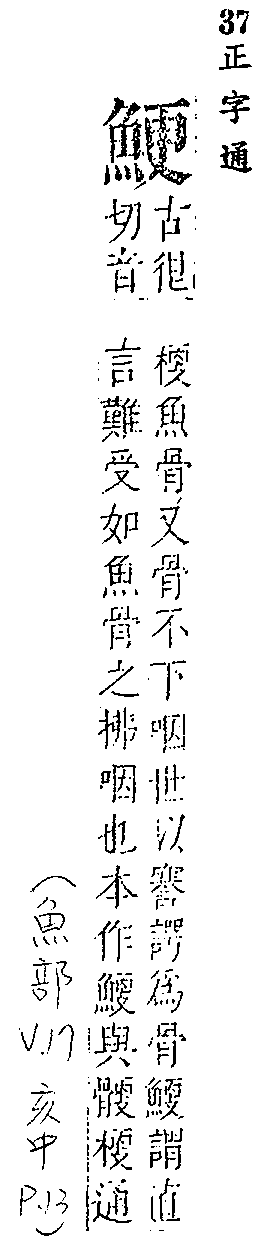 37 正字通
鯁
古很
切音
梗魚骨又骨不下咽世以謇諤爲骨鯁謂直
言難受如魚骨之拂咽也本作鯁與骾梗通
(魚部 V.17 亥中 P.13)